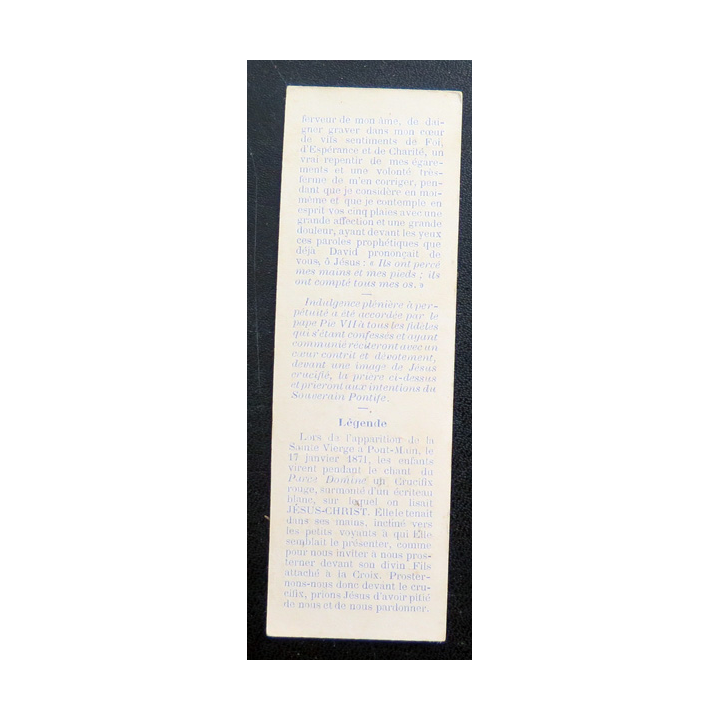 ferveur de mon âme, de dai-
gner graver dans mon cœur
de vifs sentiments de Foi,
d'Espérance et de Charité, un
vrai repentir de mes égare-
ments et une volonté très-
ferme de m'en corriger, pen-
dant que je considère en moi-
même et que je contemple en
esprit vos cinq plaies avec une
grande affection et une grande
douleur, ayant devant les yeux
ces paroles prophétiques que
déjà David prononçait de
vous, ô Jésus : « Ils ont percé
mes mains et mes pieds ; ils
ont compté tous mes os. »
Indulgence plénière à per-
pétuité a été accordée par le
pape Pie VII à tous les fidèles
qui s'étant confessés et ayant
communié réciteront avec un
cœur contrit et dévotement,
devant une image de Jésus
crucifié, la prière ci-dessus
et prieront aux intentions du
Souverain Pontife.
Légende
Lors de l'apparition de la
Sainte Vierge à Pont-Main, le
17 janvier 1871, les enfants
virent pendant le chant du
Parce Domine un Crucifix
rouge, surmonté d'un écriteau
blanc, sur lequel on lisait
JÉSUS-CHRIST. Elle le tenait
dans ses mains, incliné vers
les petits voyants à qui Elle
semblait le présenter, comme
pour nous inviter à nous pros-
terner devant son divin Fils
attaché à la Croix. Proster-
nons-nous donc devant le cru-
cifix, prions Jésus d'avoir pitié
de nous et de nous pardonner.